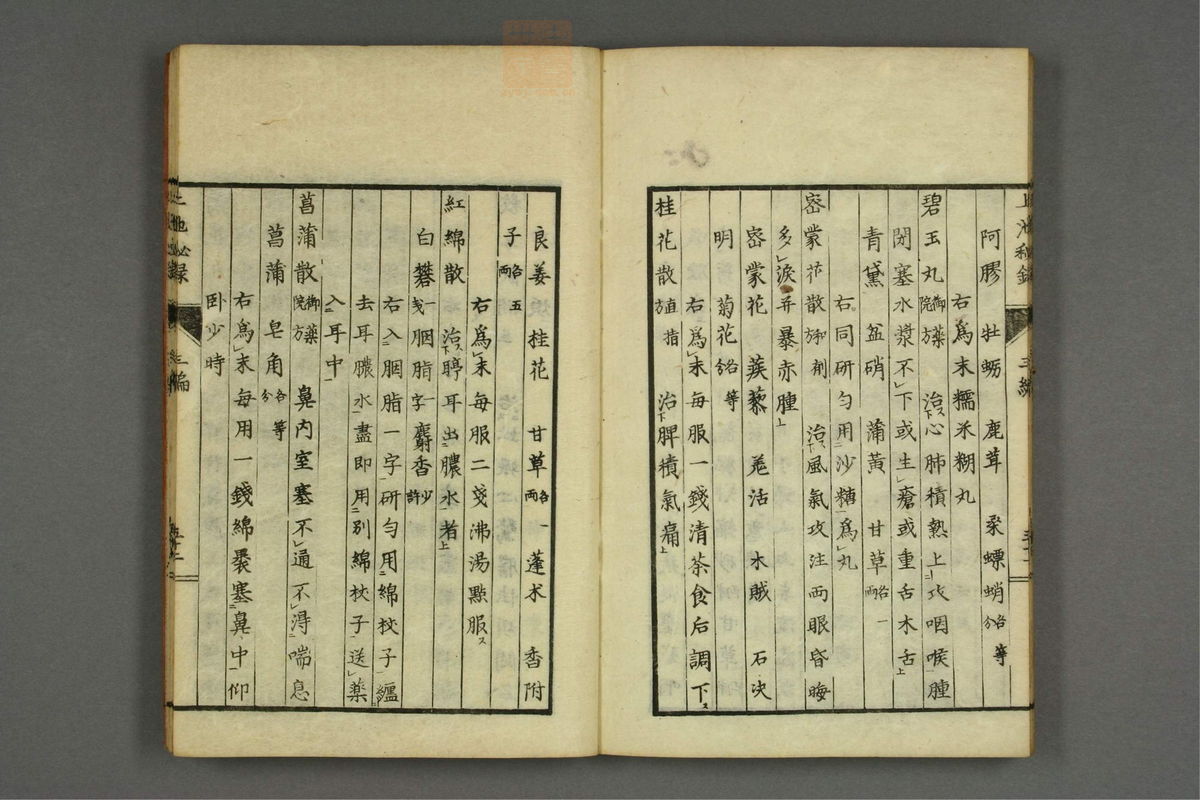 阿膠 牡蛎 鹿茸 桒螵蛸各等分
右爲末糯米糊丸
碧玉丸御藥院方 治心肺積熱上攻咽喉腫
閉塞水漿不下或生瘡或重舌木舌
青黛 盆硝 蒲黃 甘草各一両
右同研勻用沙糖爲丸
密蒙花散 治風氣攻注両眼昏晦
多淚并暴赤腫
密蒙花 蒺藜 羗活 木賊 石决
明 菊花各等分
右爲末每服一錢清茶食后調下
桂花散直指方 治脾積氣痛
良姜 桂花 甘草各一両 蓬朮 香附
子各五両
右爲末每服二戔沸湯點服
紅綿散 治聤耳出膿水者
白礬一戔 胭脂一字 麝香少許
右入胭脂一字研勻用綿杖子纏
去耳膿水盡即用別綿杖子送藥
入耳中
菖蒲散御藥院方 鼻內窒塞不通不淂喘息
菖蒲 皂角各等分
右爲末每用一錢綿裹塞鼻中仰
卧少時
三編